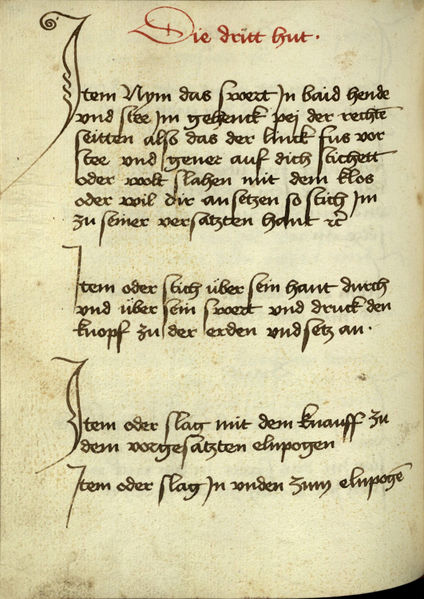 Die dritt hut ·
Item Nym das swert In baid hende
vnd stee Im gehenck pei der rechten
seitten also das der linck fus vor
stee vnd gener auf dich stichett
oder wolt slahen mit dem klos
oder wil dir an setzen so stich Im
zu seiner versatzten hant etc
Item oder stich über sein hant durch
vnd über sein swert vnd druck den
knopf zu der erden vnd setz an ·
Item oder slag mit dem knauff zu
dem vorgesatzten elnpogen
Item oder slag In vnden zum elnpogen